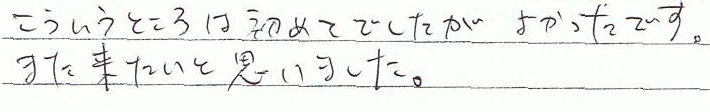 こういうところは初めてでしたが よかったです。
また来たいと思いました。